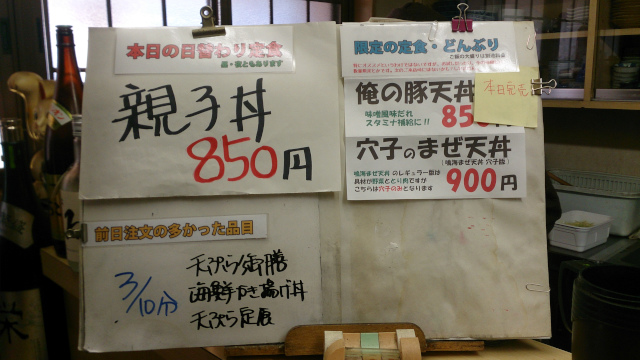 本日の日替わり定食
昼・夜ともあります
親子丼
850円
前日注文の多かった品目
3/10分
天ぷら御膳
海鮮かき揚げ丼
天ぷら定食
限定の定食・どんぶり
俺の豚天丼
味噌風味だれ
スタミナ補給に!!
85
本日完売
穴子のまぜ天丼
(鳴海まぜ天丼 穴子版)
鳴海まぜ天丼 のレギュラー版は
具材が野菜ととり肉ですが
こちらは穴子のみとなります
900円
栄